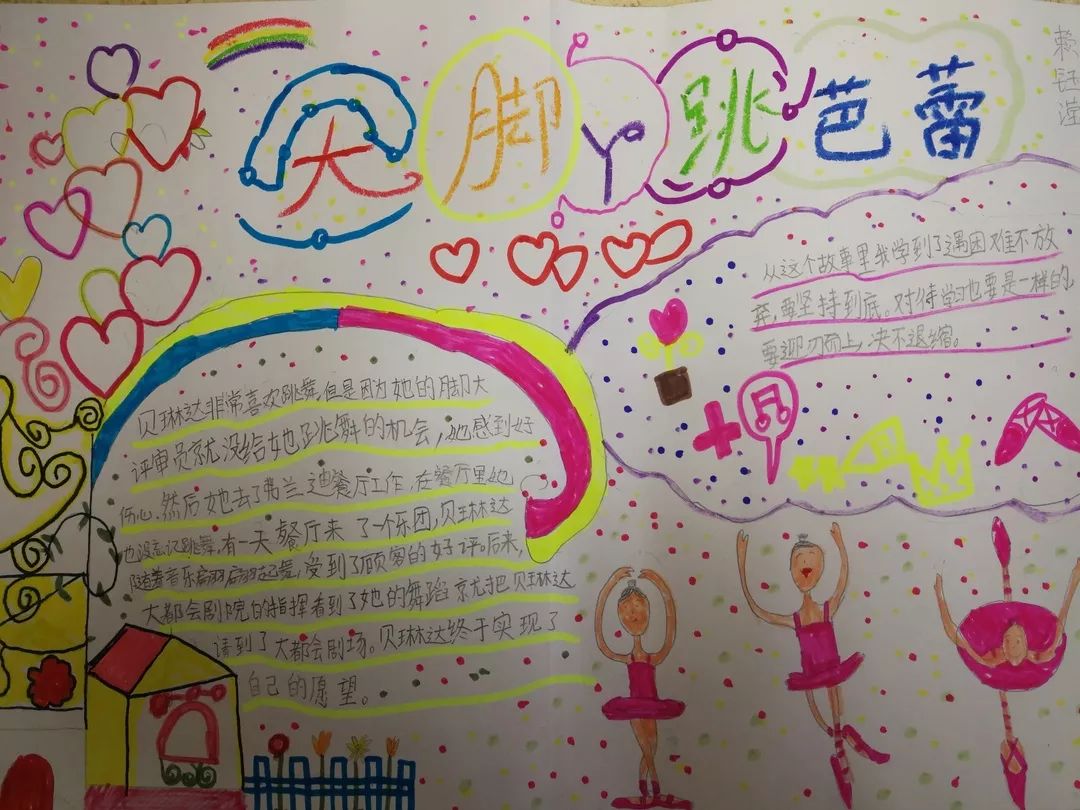 大脚丫跳芭蕾
赖钰滢
贝琳达非常喜欢跳舞,但是因为她的脚大
评审员就没给她跳舞的机会,她感到好
伤心。然后她去了弗兰迪餐厅工作,在餐厅里她
也没忘记跳舞,有一天餐厅来了一个乐团,贝琳达
随着音乐翩翩起舞,受到了顾客的好评。后来,
大都会剧院的指挥看到了她的舞蹈就把贝琳达
请到了大都会剧场。贝琳达终于实现了
自己的愿望。
从这个故事里我学到了遇困难不放
弃,要坚持到底。对待学习也要是一样的,
要迎刃而上,决不退缩。